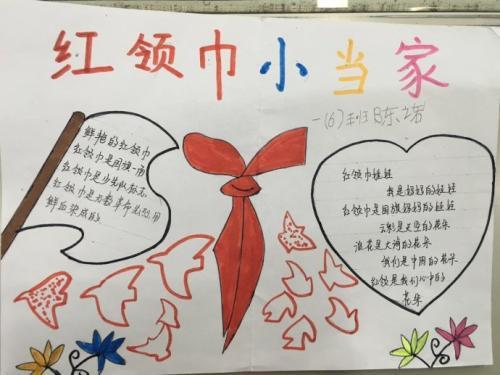 红领巾小当家
一(6)班 陈
鲜艳的红领巾
红领巾是国旗一角
红领巾是少先队标志
红领巾是无数革命先烈用
鲜血染成的
红领巾娃娃
我是妈妈的娃娃
红领巾是国旗妈妈的娃娃
云彩是天空的花朵
浪花是大海的花朵
我们是中国的花朵
红领是我们心中的
花朵